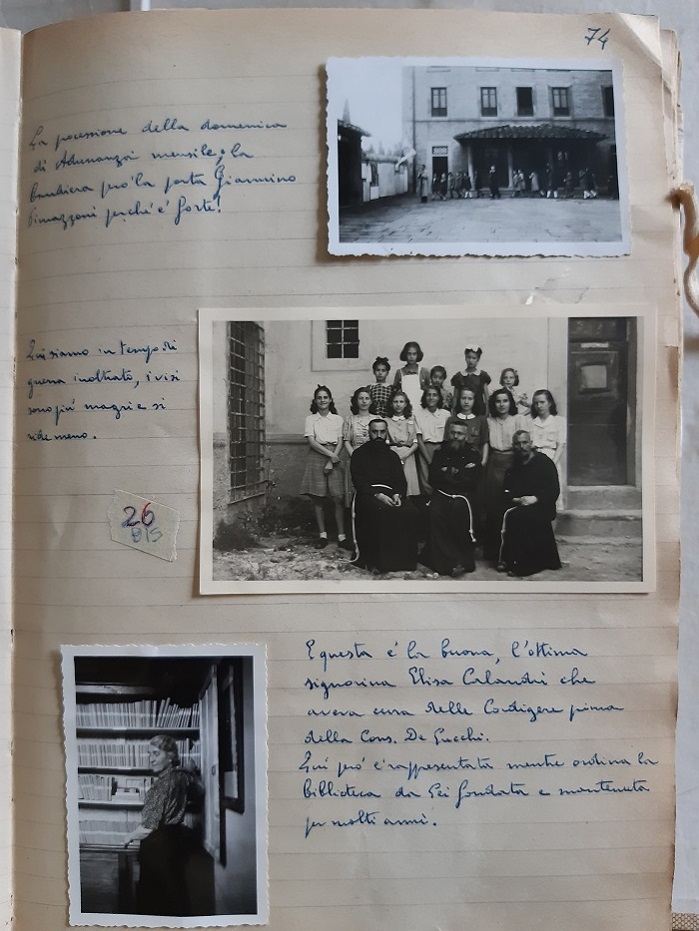 74
La pocessione della domenica
di Adunanza mensile; la
bandiera però la porta Giannino
Pimazzoni perché è forte!
Qui siamo in tempo di
guerra inoltrato, i visi
sono più magri e si
ride meno.
26
BIS
E questa è la buona, l'ottima
signorina Elisa Calandri che
aveva cura delle Cordigere prima
della Cons. De Gucchi.
Qui però è rappresentata mentre ordina la
Biblioteca da Lei fondata e mantenuta
per molti anni.